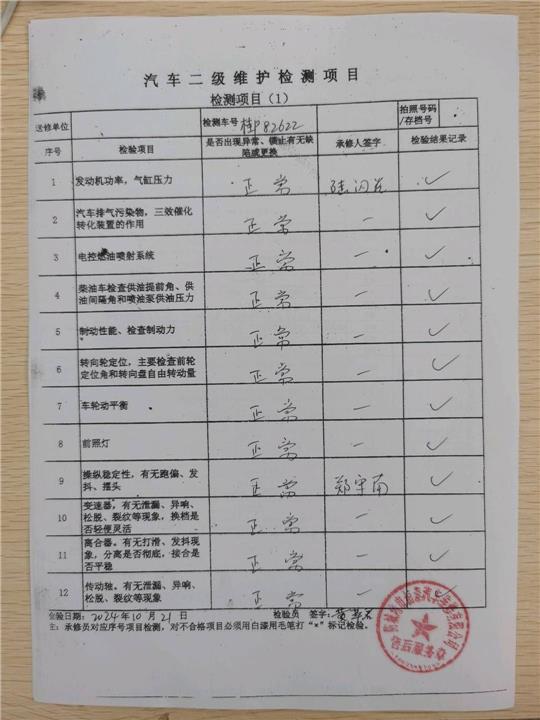 汽车二级维护检测项目
检测项目（1）
送修单位 检测车号 桂P82622 拍照号码/存档号
序号 检验项目 是否出现异常、锁止有无缺陷或更换 承修人签字 检验结果记录
1 发动机功率，气缸压力 正常 ✓
2 汽车排气污染物，三效催化 正常 — ✓
转化装置的作用
3 电控燃油喷射系统 正常 — ✓
4 柴油车检查供油提前角、供 正常 — ✓
油间隔角和喷油泵供油压力
5 制动性能、检查制动力 正常 — ✓
6 转向轮定位，主要检查前轮 正常 — ✓
定位角和转向盘自由转动量
7 车轮动平衡 正常 — ✓
8 前照灯 正常 — ✓
9 操纵稳定性，有无跑偏、发 正常 郑宇南 ✓
抖、摆头
10 变速器，有无泄漏、异响、 正常 — ✓
松脱、裂纹等现象，换档是
否轻便灵活
11 离合器。有无打滑、发抖现 正常 — ✓
象，分离是否彻底，接合是
否平稳
12 传动轴。有无泄漏、异响、 正常 — ✓
松脱、裂纹等现象
检验日期：2024年10月21日 检验员 签字：
注：承修员对应序号项目检测，对不合格项目必须用白漆用毛笔打“×”标记检验。
售后服务专